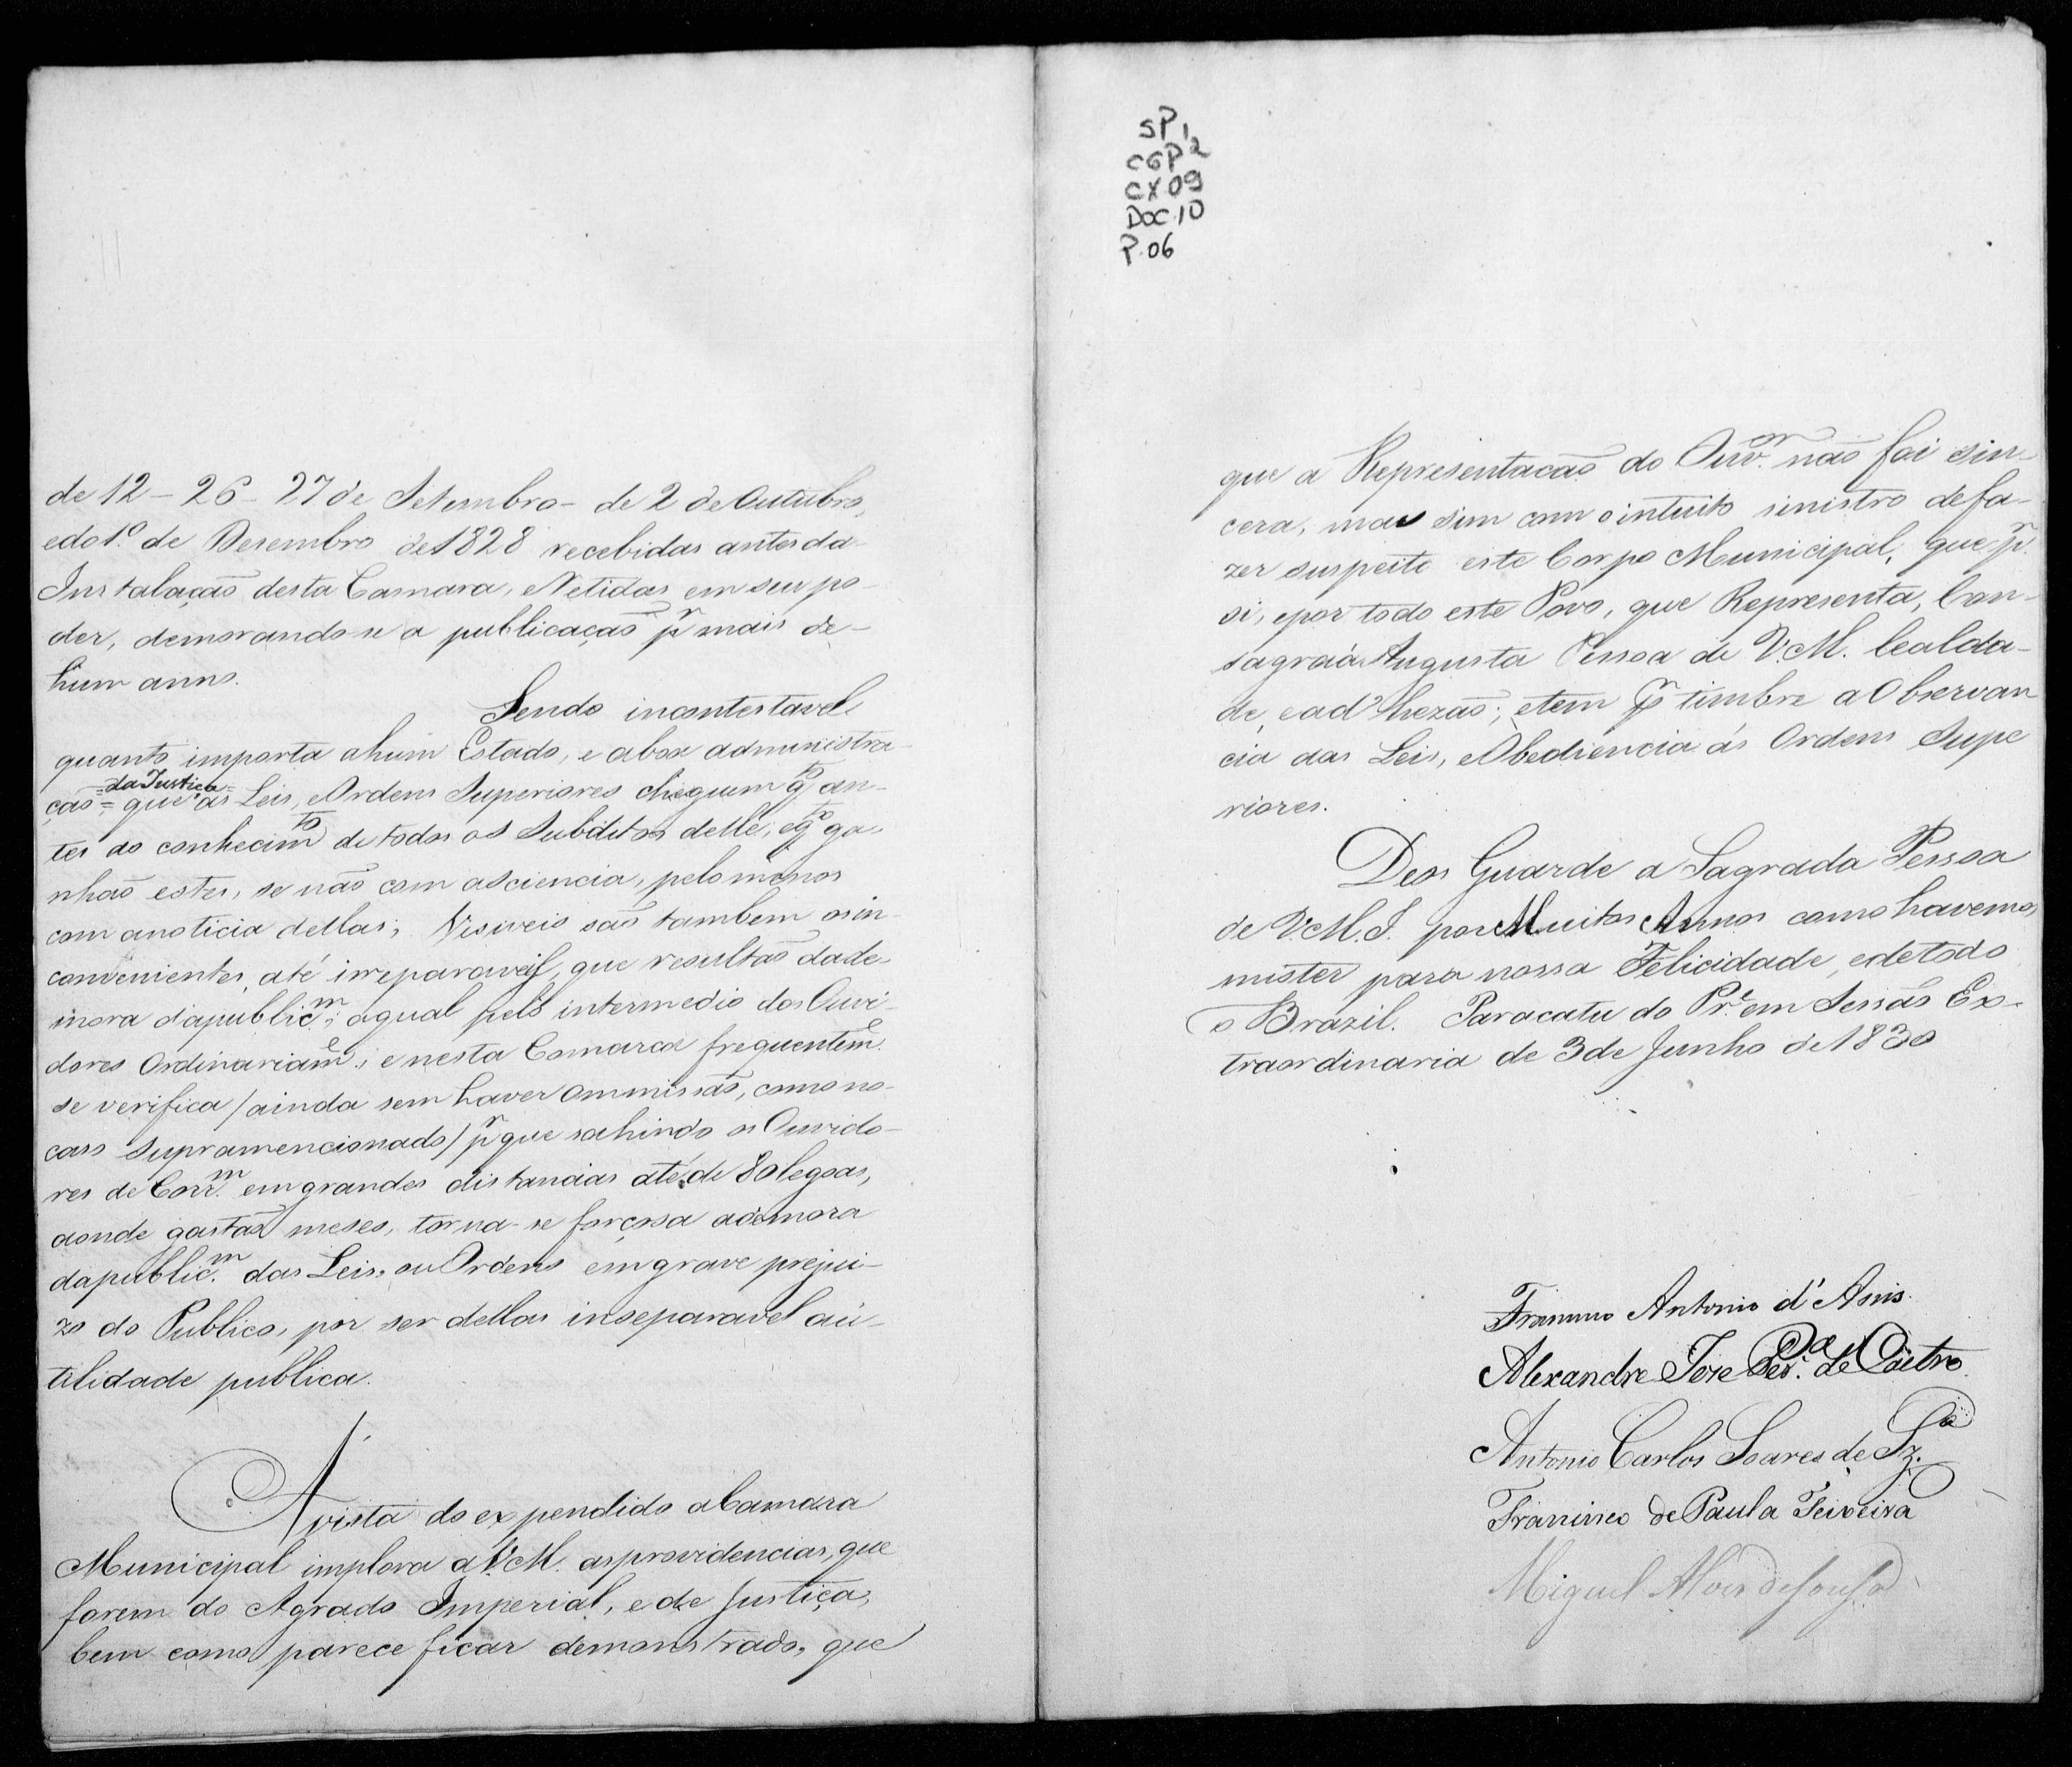 de 12 - 26 - 27 de Setembro - de 2 de Outubro,
e do 1.º de Desembro de 1828 recebidas antes da
Instalação desta Camara, e Retidas em seu po-
der, demorando-se a publicação p.r mais de
hum anno.
Sendo incontestavel
quanto importa a hum Estado, e a boa administra-
ção = da Justiça = que as Leis, e Ordens Superiores cheguem q.to an-
tes ao conhecim.to de todos os Subditos delle, e q.to ga-
nhão estes, se não com a sciencia, pelo menos
com a noticia dellas; Visiveis são tambem os in-
convenientes, até irreparaveis, que resultão da de-
mora da public.m; a qual pelo intermedio dos Ouvi-
dores Ordinariam.e, e nesta Comarca frequentem.e
se verifica / ainda sem haver ommissão, como no
caso supramencionado / p.r que sahindo os Ouvido-
res de Corr.m em grandes distancias até de 80 legoas,
aonde gastão meses, torna-se forçosa a demora
da public.m das Leis, ou Ordens em grave prejui-
zo do Publico, por ser dellas inseparavel a ú-
tilidade publica.
A vista do expendido a Camara
Municipal implora a V. M. as providencias, que
forem do Agrado Imperial, e de Justiça,
bem como parece ficar demonstrado, que
SP1
CGP2
CX.09
DOC.10
P.06
que a Representacão do Ouv.or não foi sin-
cera, mas sim com o intuito sinistro de fa-
zer suspeito este Corpo Municipal, que p.r
si, e por todo este Povo, que Representa, Con-
sagra á Augusta Pessoa de V. M. lealda-
de, e ad'hezão; e tem p.r timbre a Observan
cia das Leis, e Obediencia ás Ordens Supe
riores.
Deos Guarde a Sagrada Pessoa
de V. M. I. por Muitos Annos como havemos
mister para nossa Felicidade, e de todo
o Brazil. Paracatu do Pr.e em Sessão Ex-
traordinaria de 3 de Junho de 1830
Antonio d'Assis.
Alexandre Joze de Castro
Antonio Carlos Soares de Sz.a
Francisco de Paula Teixeira
Miguel Alves de Sousa